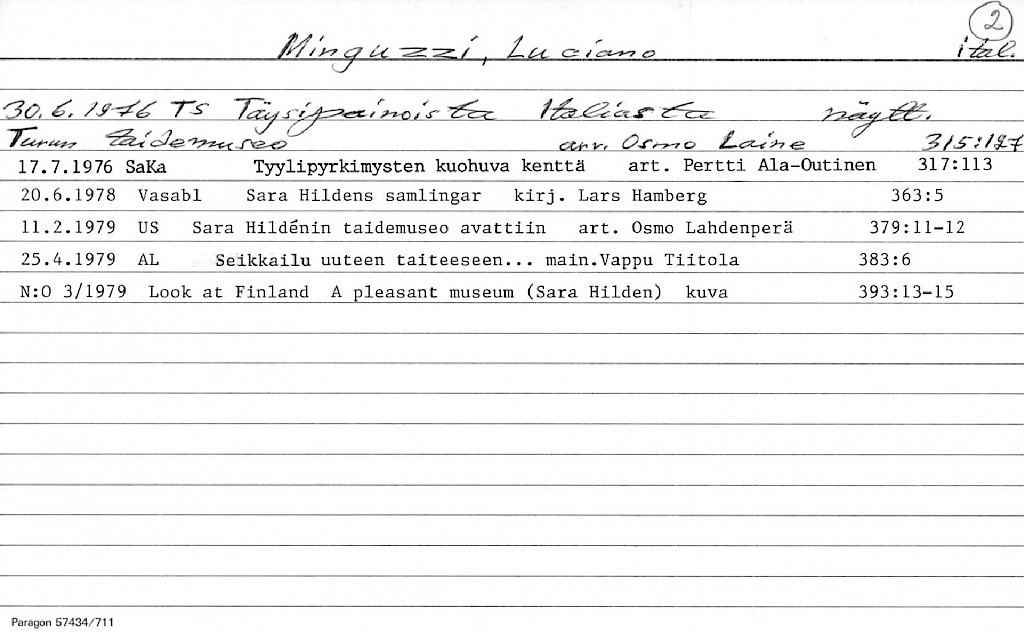 2
Minguzzi, Luciano ital.
30.6.1976 TS Täysipainoista Italiasta näytt.
Turun taidemuseo arv. Osmo Laine 315:127
17.7.1976 SaKa Tyylipyrkimysten kuohuva kenttä art. Pertti Ala-Outinen 317:113
20.6.1978 Vasabl Sara Hildens samlingar kirj. Lars Hamberg 363:5
11.2.1979 US Sara Hildénin taidemuseo avattiin art. Osmo Lahdenperä 379:11-12
25.4.1979 AL Seikkailu uuteen taiteeseen... main.Vappu Tiitola 383:6
N:O 3/1979 Look at Finland A pleasant museum (Sara Hilden) kuva 393:13-15
Paragon 57434/711